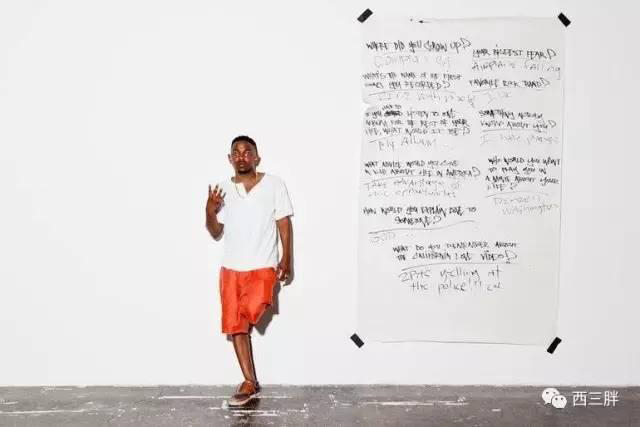 WHERE DID YOU GROW UP?
Compton, CA
WHAT'S THE NAME OF THE FIRST
SONG YOU RECORDED?
LISTEN TO ONE
ALBUM FOR THE REST OF YOUR
LIFE, WHAT WOULD IT BE?
My Album...
WHAT ADVICE WOULD YOU GIVE
A KID ABOUT LIFE IN AMERICA?
Take advantage of
the opportunities
HOW WOULD YOU EXPLAIN TO
SOMEONE?
GOD...
YOUR BIGGEST FEAR?
Airplane falling
FAVORITE ROCK BAND?
SOMETHING NOBODY
KNOWS ABOUT YOU?
I hate
WHO WOULD YOU WANT
TO PLAY YOU IN
A MOVIE ABOUT YOUR
LIFE?
Denzel
Washington
WHAT DO YOU REMEMBER ABOUT
THE CALIFORNIA LOVE VIDEO?
2Pac yelling at
the police!!!
西三胖